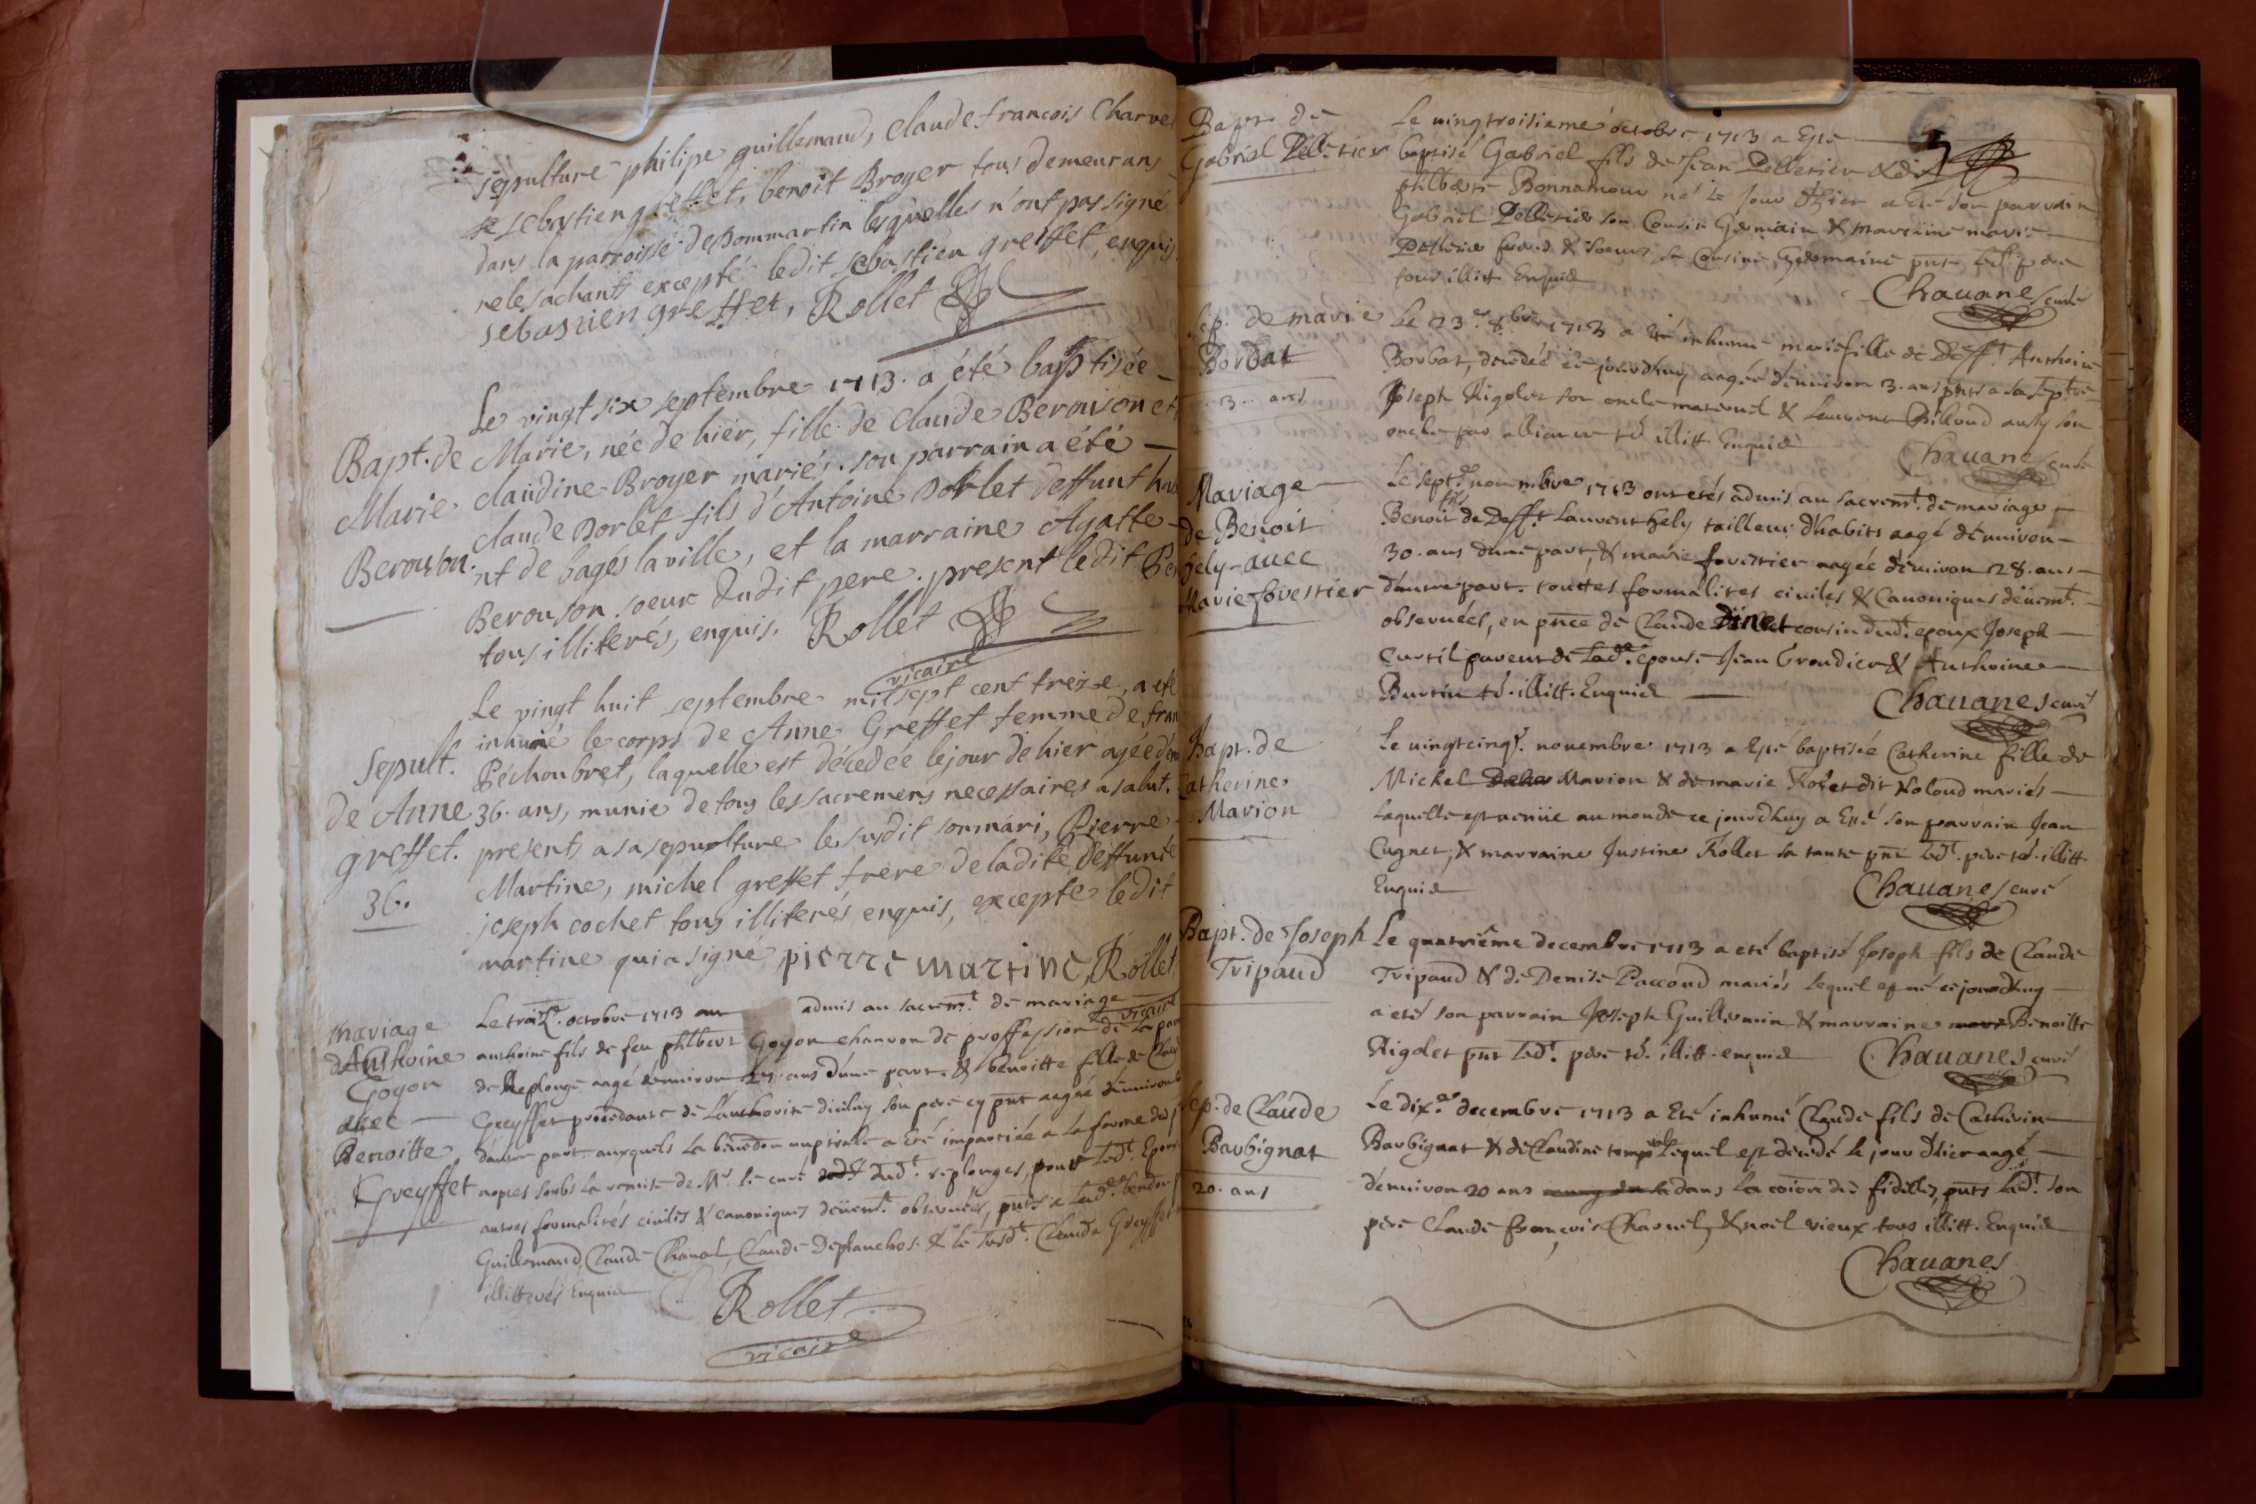 sepulture philipe guillemaud, claude francois Charve
et sebastien greffet, benoit Broyer tous demeurans
dans la parroisse de dommartin lesquelles n'ont pas signé
ne le sachant excepté ledit sebastien greffet, enquis.
sebastien greffet, Rollet
Le vingt six septembre 1713. a été baptisée
Bapt. de
Marie
Berouson.
Marie, née de hier, fille de claude Berouson et
claudine Broyer mariés. son parrain a été
claude Dorlet fils d'Antoine Dorlet deffunt
de bagés la ville, et la marraine Agathe
Berouson soeur dudit pere. present ledit
tous illiterés, enquis. Rollet
vicaire
Le vingt huit septembre mil sept cent treize, a eté
Sepult.
de Anne
greffet.
36.
inhumé le corps de Anne Greffet femme de
Péchoubret, laquelle est décedée le jour de hier agée
36. ans, munie de tous les sacremens necessaires a salut.
presents a sa sepulture le susdit son mari, Pierre
Martine, michel greffet frere de ladite deffunte
joseph cochet tous illiterés enquis, excepté ledit
martine qui a signé pierre martine, Rollet
vicaire
Mariage
d'Anthoine
Goyon
avec
Benoitte
Greyffet
Le octobre 1713 admis au sacremt. de mariage
anthoine fils de feu philbert Goyon charron de proffession de la
de Replonge aagé d'environ ans d'une part. & benoitte fille de
Greyffet procedante de l'authorité diceluy son pere cy pnt aagée d'environ
d'autre part. auxquels la bénédon nuptiale a eté impartiée a la forme
nopces soubs la remise de Mr. le curé dudt. replonges, pour ledt.
autres formalités civiles & canoniques deüemt. observées, pnts a
Guillemaud, Claude Chanal, Claude Desplanches & le susdt. Claude Greyffet
illitterés Enquis
Rollet
vicaire
Bapt. de
Gabriel Pelletier
Le vingtroisieme octobre 1713 a Eté
baptisé Gabriel fils de Jean Pelletier & de
philberte Bonnamour né le jour d'hier a eté son parrain
Gabriel Pelletier son Cousin Germain & marraine marie
Pelletier sa Cousine Germaine pnt ledt. pere
tous illitt Enquis
Chauanes curé
Sep. de marie
Borbat
3. ans
Le 23e. 8bre 1713 a eté inhumé marie fille de Defft. Anthoine
Borbat, décédée ce jourdhuy aagée d'environ 3. ans pnts a sa septre
Joseph Rigolet son oncle maternel & Laurent aussy son
oncle par alliance illitt Enquis
Chauanes curé
Mariage
de Benoit
hely avec
Marie forestier
Le sept. novembre 1713 ont etés admis au sacremt. de mariage
Benoit fils de Defft Laurent hely tailleur d'habits aagé d'environ
30. ans d'une part, & marie forestier aagée d'environ 28. ans
d'autre part. touttes formalites civiles & Canoniques deüemt.
observées, en pnce de Claude Dinet cousin dudt. epoux Joseph
Curtil parent de ladte. epouse Jean Grondier & Anthoine
Burtin illitt. Enquis
Chauanes curé
Bapt. de
Catherine
Marion
Le vingtcinq. novembre 1713 a Eté baptisée Catherine fille de
Michel Marion & de marie Rolet dit Roloud mariés
laquelle est venüe au monde ce jourdhuy a Eté son parrain Jean
Cugnet, & marraine Justine Rollet sa tante pnt ledt. pere illitt.
Enquis
Chauanes curé
Bapt. de Joseph
Tripaud
Le quatriéme decembre 1713 a eté baptisé Joseph fils de Claude
Tripaud & de Denise Paccoud mariés lequel est né ce jourdhuy
a eté son parrain Joseph Guillermin & marraine Benoitte
Rigolet pnt ledt. pere illitt. enquis
Chauanes curé
Sep. de Claude
Barbignat
20. ans
Le dix. decembre 1713 a Eté inhumé Claude fils de Catherin
Barbignat & de Claudine lequel est décédé le jour d'hier aagé
d'environ 20 ans dans la des fidelles, pnts ledt. son
pere Claude françois Charuel, & noel vieux tous illitt. Enquis
Chauanes